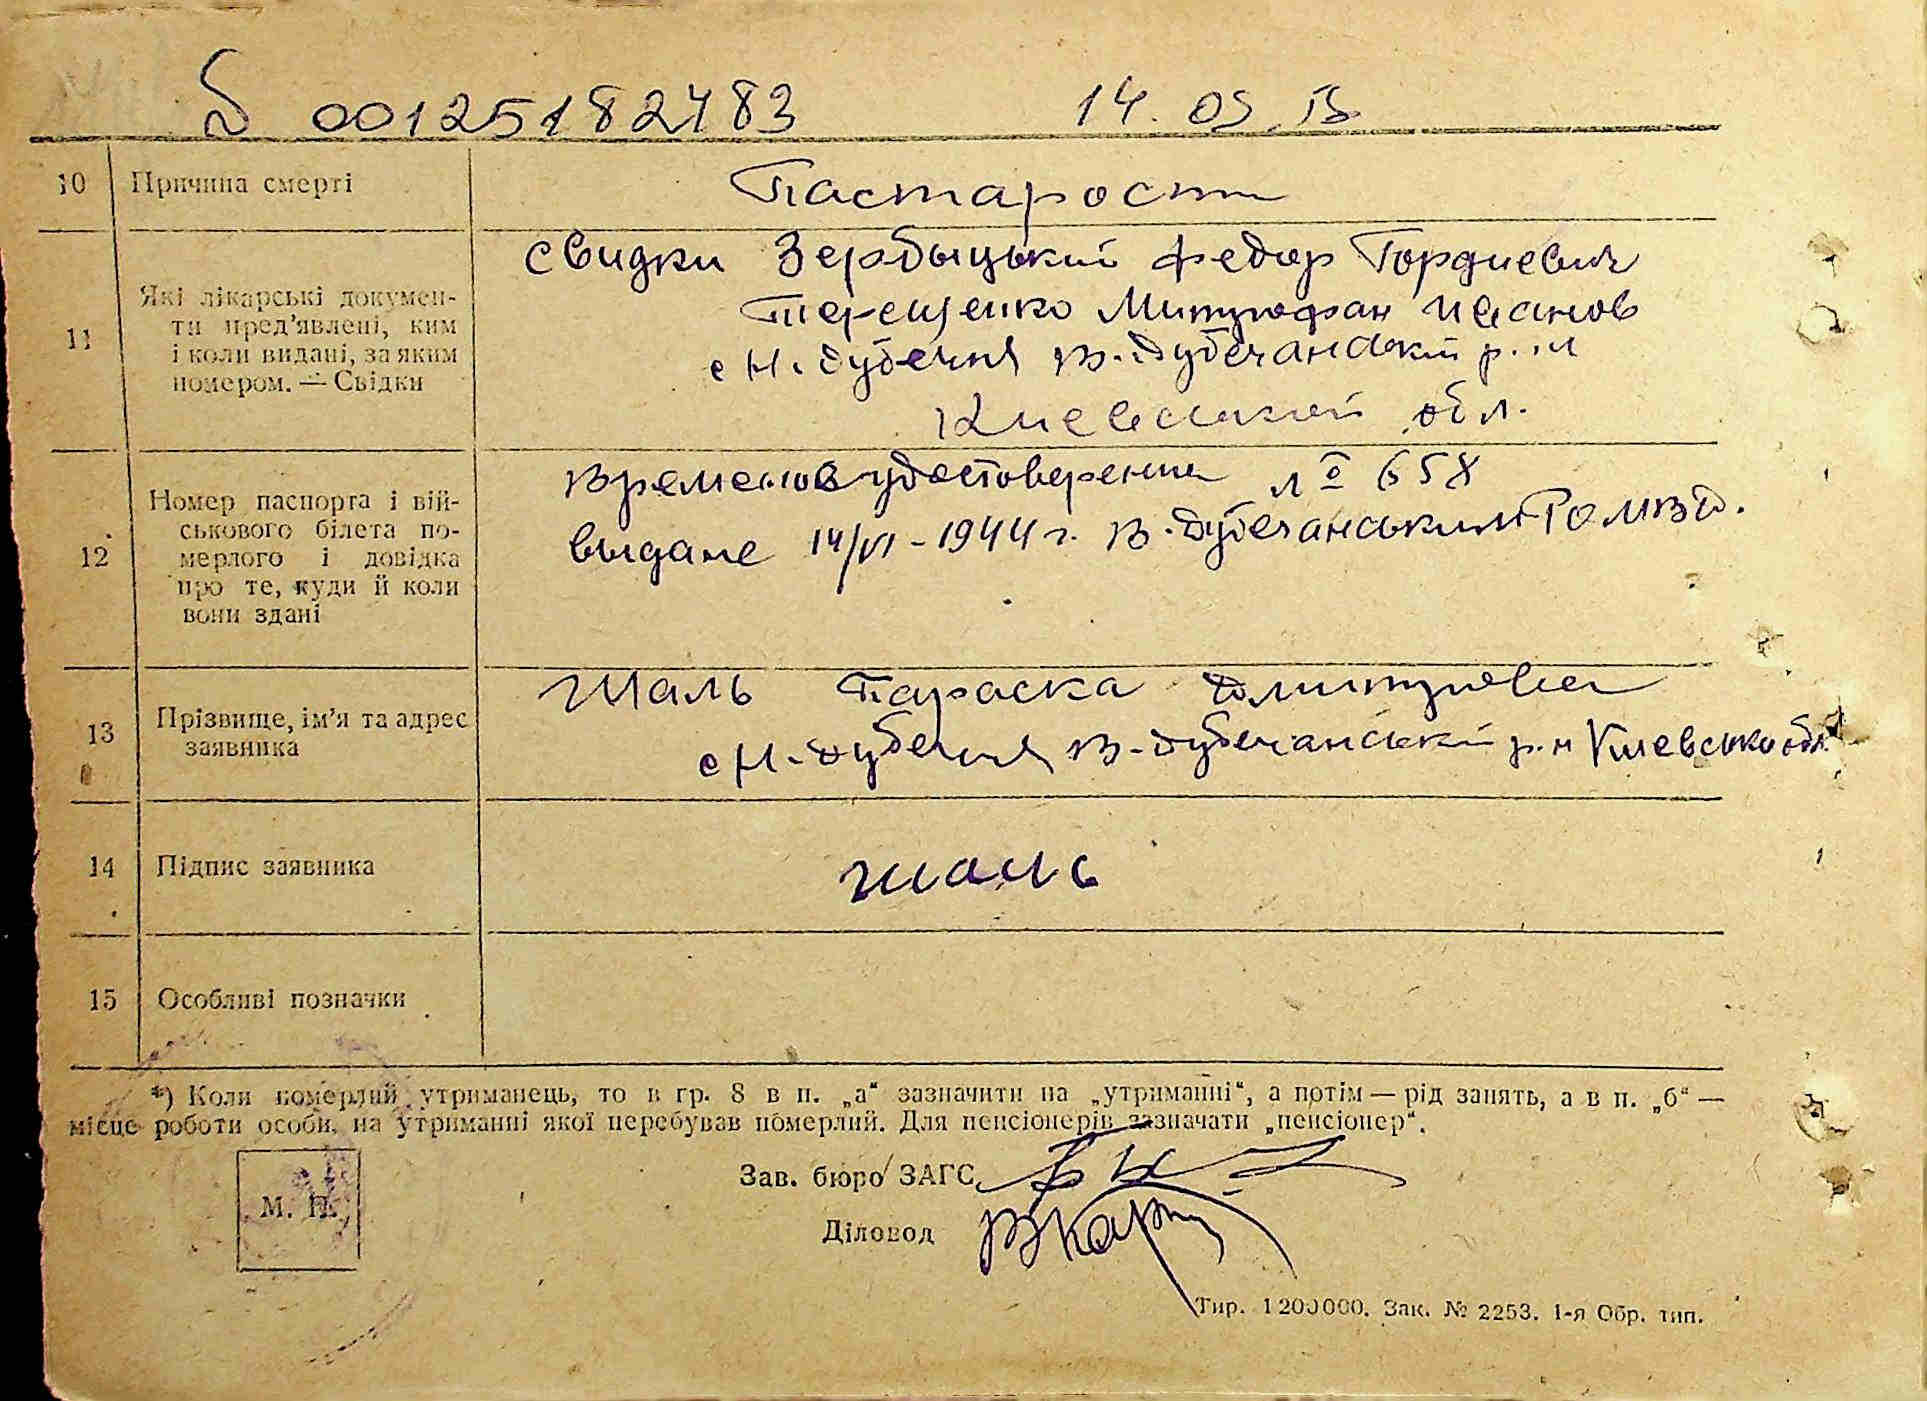 00125182483 14.05.13
10 Причина смерті
Пастарости
11 Які лікарські докумен-
ти пред’явлені, ким
і коли видані, за яким
номером. — Свідки
свидки Зербыцький Федор Гордиевич
Терещенко Митрофан Иванов
с Н. Дубечня В-Дубечанський р.н
Киевской обл.
12 Номер паспорта і вій-
ськового білета по-
мерлого і довідка
про те, куди й коли
вони здані
Временов удостоверение № 658
выдане 14/VI-1944 г. В-Дубечанським РОМВД.
13 Прізвище, ім’я та адрес
заявника
Шаль Параска Дмитровна
с Н-Дубечня В-Дубечанській р.н Киевсько обл.
14 Підпис заявника
Шаль
15 Особливі позначки
*) Коли померлий утриманець, то в гр. 8 в п. „а“ зазначити на „утриманні“, а потім — рід занять, а в п. „б“ —
місце роботи особи, на утриманні якої перебував померлий. Для пенсіонерів зазначати „пенсіонер“.
М. П.
Зав. бюро ЗАГС
Діловод
Тир. 1200000. Зак. № 2253. 1-я Обр. тип.